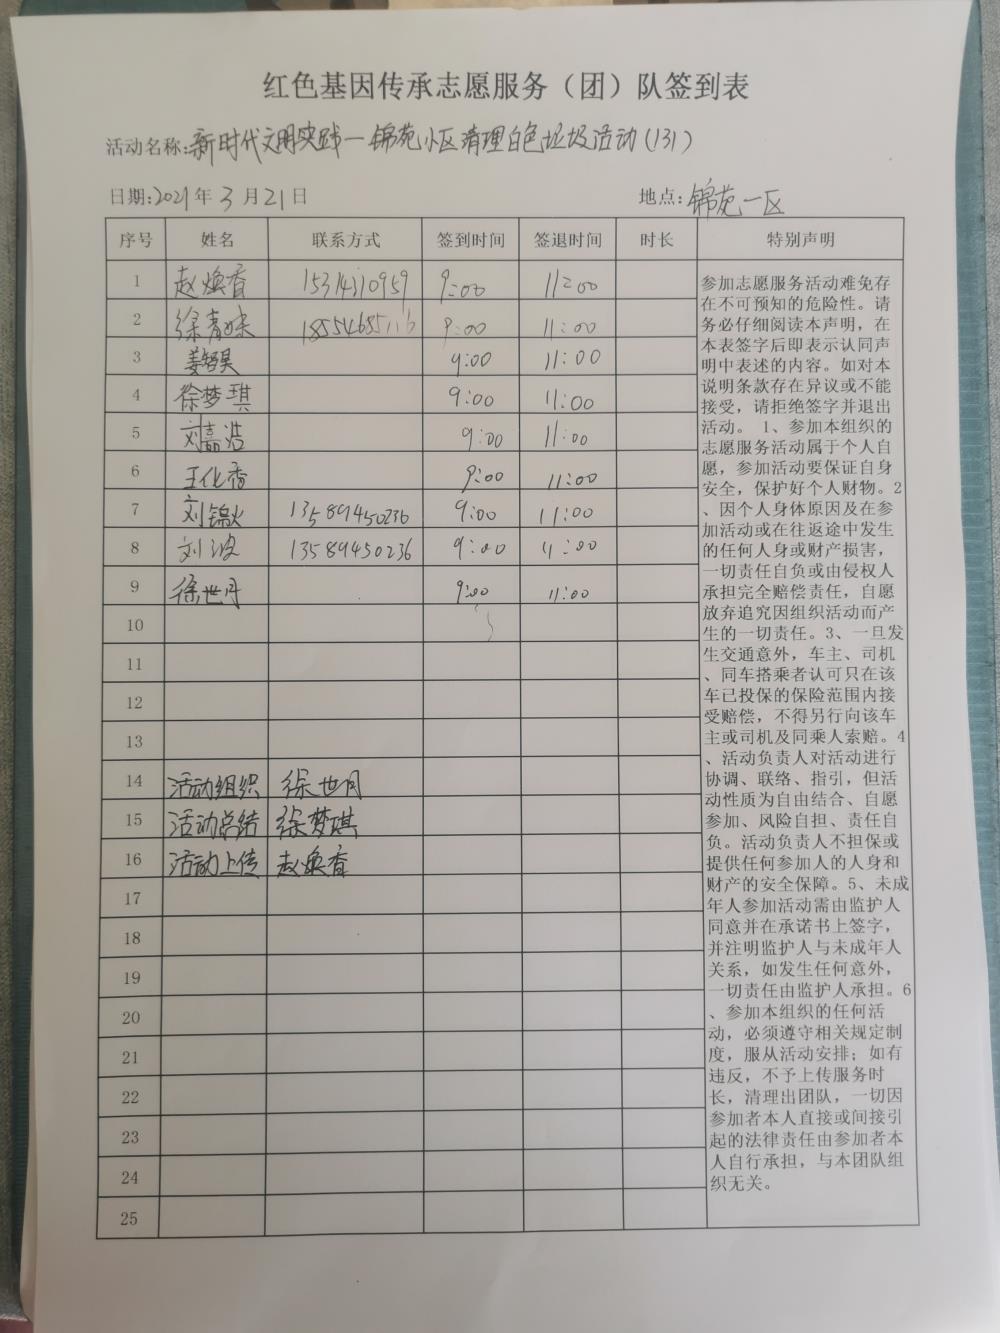 红色基因传承志愿服务（团）队签到表
活动名称:新时代文明实践一锦苑小区清理白色垃圾活动(131)
日期:2021年3月21日 地点:锦苑一区
序号 姓名 联系方式 签到时间 签退时间 时长 特别声明
1 赵焕香 9:00 11:00
2 9:00 11:00
3 姜智昊 9:00 11:00
4 徐梦琪 9:00 11:00
5 刘嘉浩 9:00 11:00
6 王化香 9:00 11:00
7 刘锦 13589450236 9:00 11:00
8 刘波 13589450236 9:00 11:00
9 徐世月 9:00 11:00
10
11
12
13
14 活动组织 徐世月
15 活动总结 徐梦琪
16 活动上传 赵焕香
17
18
19
20
21
22
23
24
25
参加志愿服务活动难免存
在不可预知的危险性。请
务必仔细阅读本声明，在
本表签字后即表示认同声
明中表述的内容。如对本
说明条款存在异议或不能
接受，请拒绝签字并退出
活动。 1、参加本组织的
志愿服务活动属于个人自
愿，参加活动要保证自身
安全，保护好个人财物。2
、因个人身体原因及在参
加活动或在往返途中发生
的任何人身或财产损害，
一切责任自负或由侵权人
承担完全赔偿责任，自愿
放弃追究因组织活动而产
生的一切责任。3、一旦发
生交通意外，车主、司机
、同车搭乘者认可只在该
车已投保的保险范围内接
受赔偿，不得另行向该车
主或司机及同乘人索赔。4
、活动负责人对活动进行
协调、联络、指引，但活
动性质为自由结合、自愿
参加、风险自担、责任自
负。活动负责人不担保或
提供任何参加人的人身和
财产的安全保障。5、未成
年人参加活动需由监护人
同意并在承诺书上签字，
并注明监护人与未成年人
关系，如发生任何意外，
一切责任由监护人承担。6
、参加本组织的任何活
动，必须遵守相关规定制
度，服从活动安排；如有
违反，不予上传服务时
长，清理出团队，一切因
参加者本人直接或间接引
起的法律责任由参加者本
人自行承担，与本团队组
织无关。